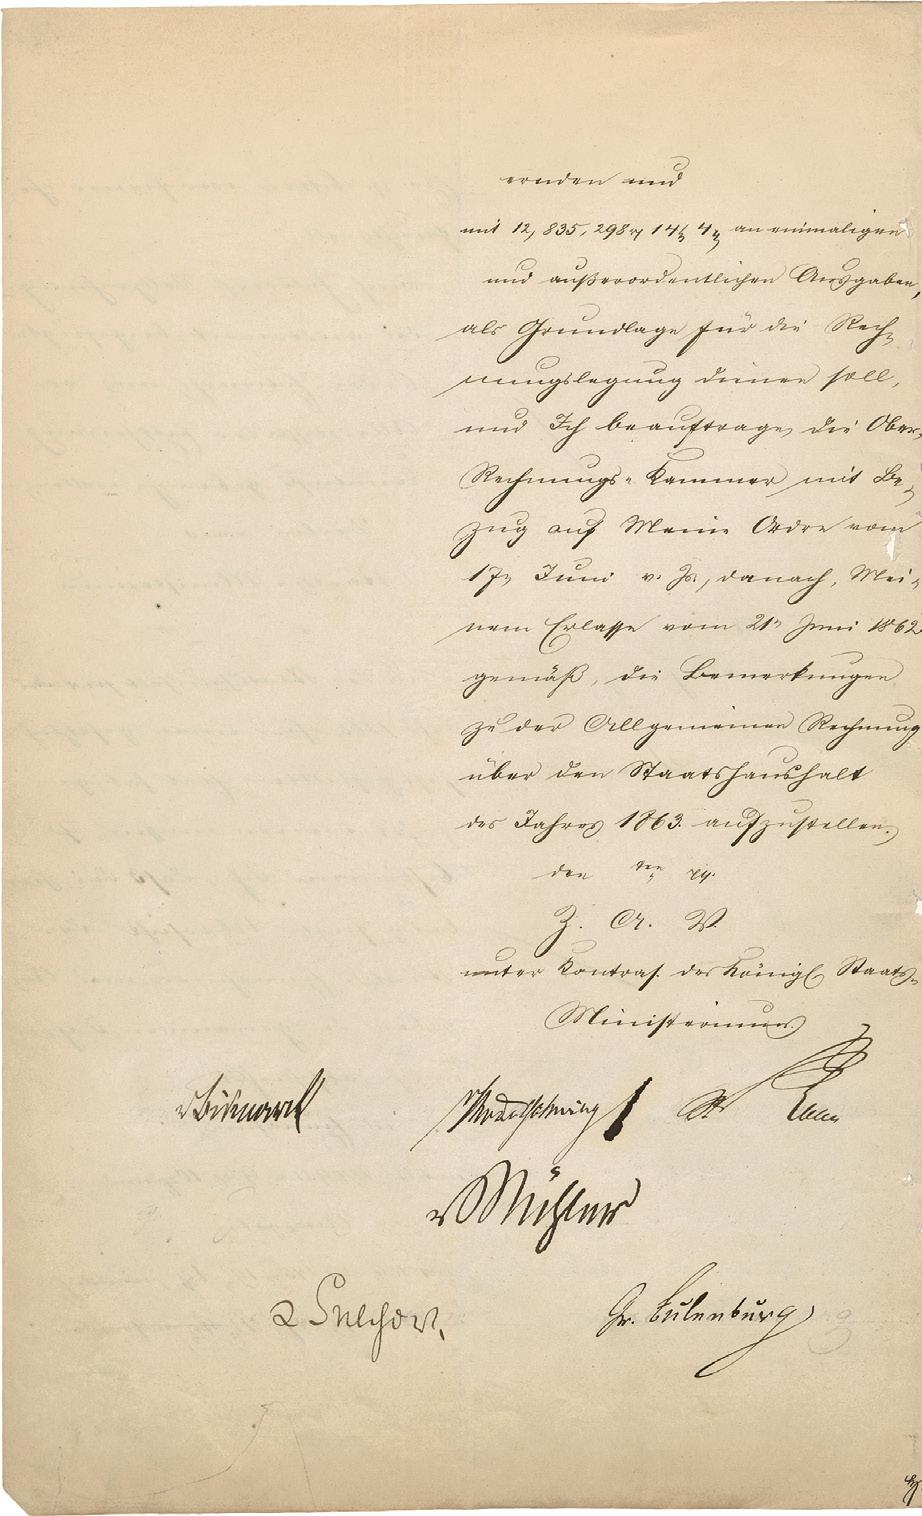 ernden und
mit 12,835,298 rt 14 4 an einmaligen
und außerordentlichen Ausgaben,
als Grundlage für die Rech-
nungslegung dienen soll,
und Ich beauftrage die Ober-
Rechnungs-Kammer mit Be-
zug auf Meine Ordre vom
17n Juni v. Js., danach, Mei-
nem Erlasse vom 21n Juni 1862
gemäß, die Bemerkungen
zu der Allgemeinen Rechnung
über den Staatshaushalt
des Jahres 1863. aufzustellen.
den ten
Z. A. V.
unter Kontras. des Königl Staats-
Ministeriums
vBismarck vBodelschwingh Roon
vMühler
vSelchow. Gr. Eulenburg